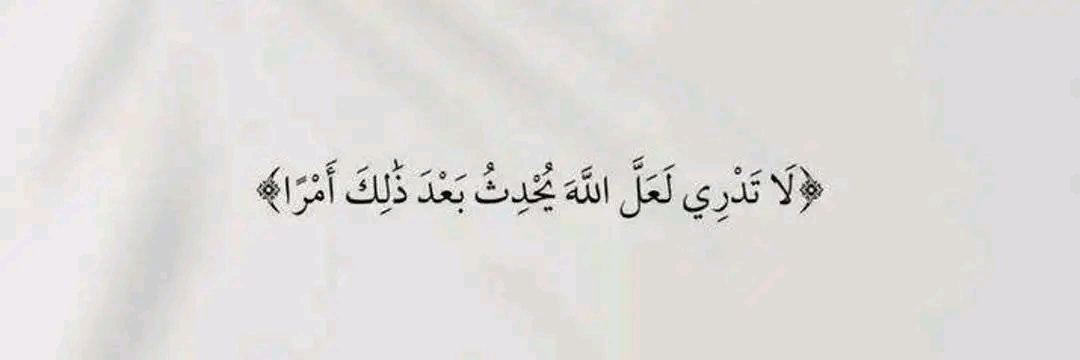 ﴿لَا تَدْرِي لَعَلَّ اللَّهَ يُحْدِثُ بَعْدَ ذَٰلِكَ أَمْرًا﴾